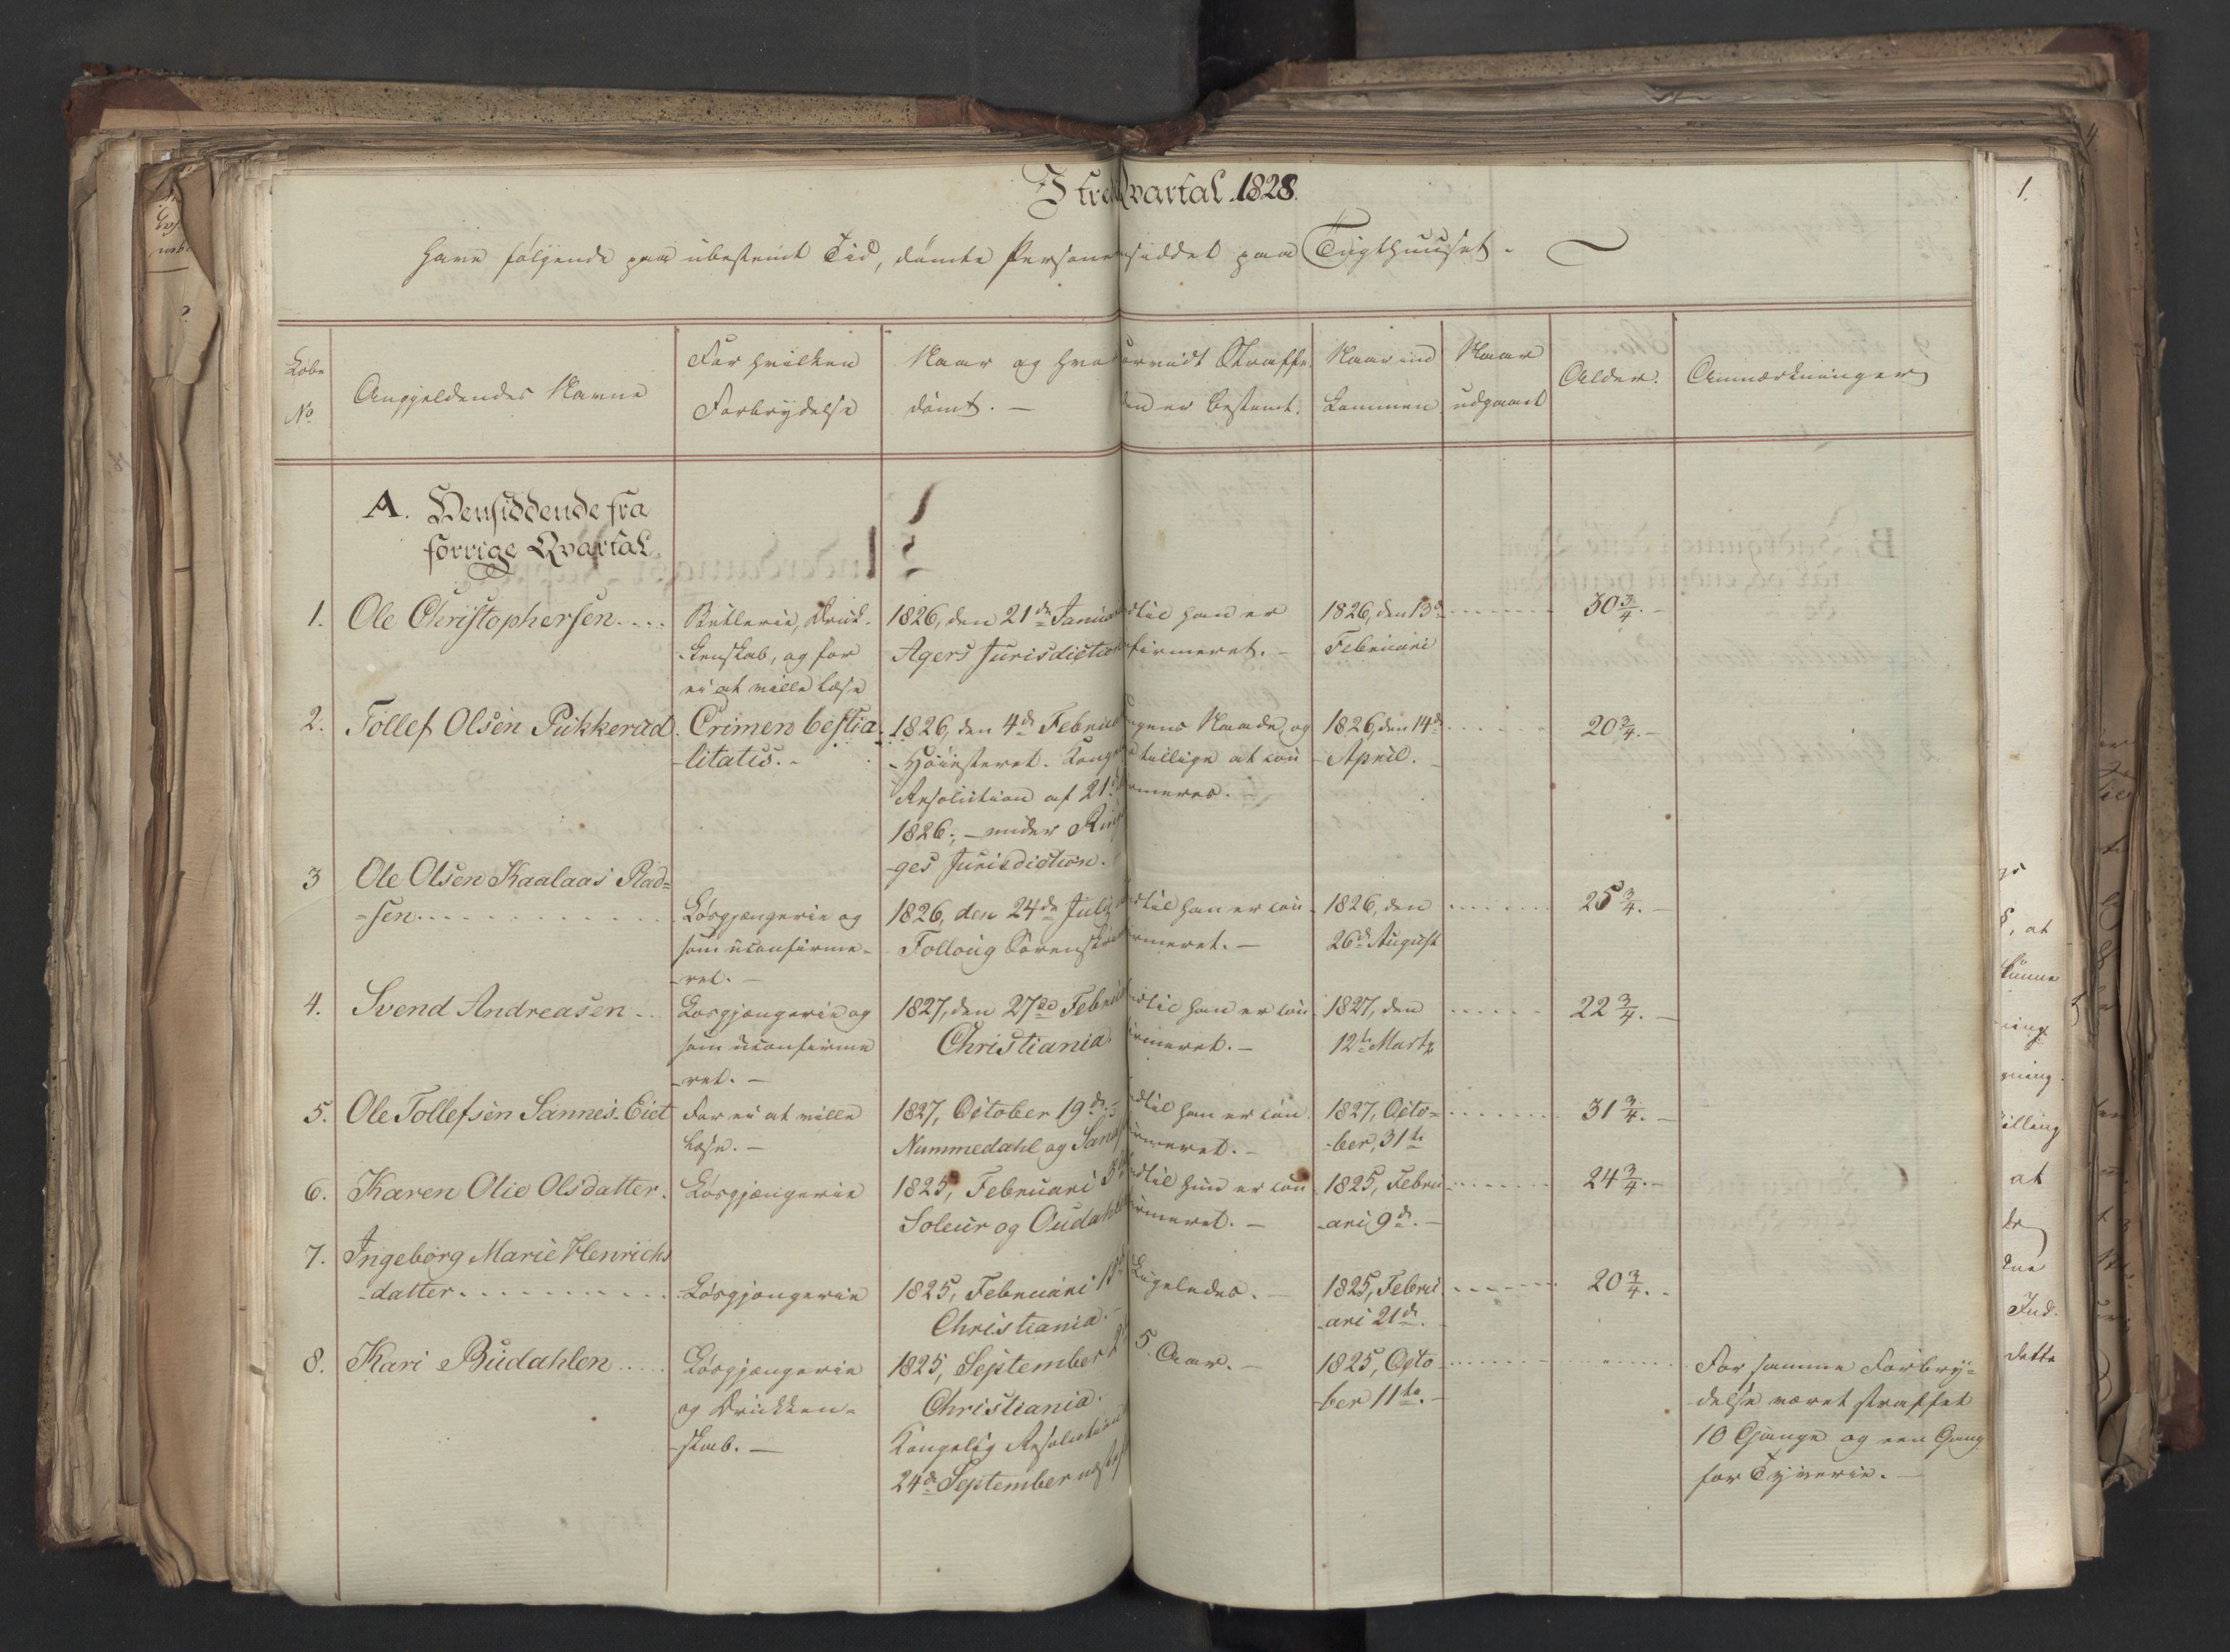 I 3die Qvartal 1828.
have følgende paa ubestemt Tid, dömte Personer siddet paa Tugthuuset.
Løbe No
Angjeldendes Navne
For hvilken Forbrydelse
Naar og hvor dömt. —
Straffetiden er bestemt.
Naar ind kommen
Naar udgaaet
Alder.
Anmærkninger
A. Hensiddende fra
forrige Qvartal.
1. Ole Christophersen....
Betlerie, Druk-
kenskab, og for
ei at ville læse
1826, den 21de Januari
Agers Jurisdiction
indtil han er
confirmeret. —
1826, den 13de
Februari
30 3/4. —
2. Tollef Olsen Pukkerud.
Crimen bestia-
litatis. -
1826, den 4de Februari
Høiesteret. Kongel
Resolution af 21de
1826. — under
ges Jurisdiction.
Kongens Naade, og
tillige at con-
firmeres. —
1826, den 14de
April. -
20 3/4. —
3 Ole Olsen Kaalaas Rad-
-sen..........
Løsgjængerie og
som uconfirme-
ret. —
1826, den 24de Juli
Folloug Sorenskr
indtil han er con-
firmeret. —
1826, den
26de August
25 3/4. —
4. Svend Andreasen...
Løsgjængerie og
som uconfirme
-ret. —
1827, den 27de Februari
Christiania.
indtil han er con-
firmeret. —
1827, den
12te Martz
22 3/4. —
5. Ole Tollefsen Sannes-Eiet
For ei at ville
læse. —
1827, October 19de. -
Nummedahl og Sand
indtil han er con-
firmeret. —
1827, Octo-
-ber, 31te
31 3/4. —
6. Karen Olie Olsdatter.
Løsgjængerie
1825, Februari 3
Soleur og Oudahlen
indtil hun er con-
firmeret. —
1825, Febru-
-ari 9de. —
24 3/4. —
7. Ingeborg Marie Henrichs
-datter..........
Løsgjængerie
1825, Februari 18
Christiania. -
Ligeledes. —
1825, Febru-
-ari 21de.
20 3/4. -
8. Kari Budahlen....
Løsgjængerie
og Drukken-
-skab. —
1825, September 2
Christiania.
Kongelig Resolution
24de September
5 Aar. —
1825, Octo-
-ber 11te. —
For samme Forbry-
delse været straffet
10 Gange og een Gang
for Tyverie. —
1.
at
kunne
at
Ind-
dette